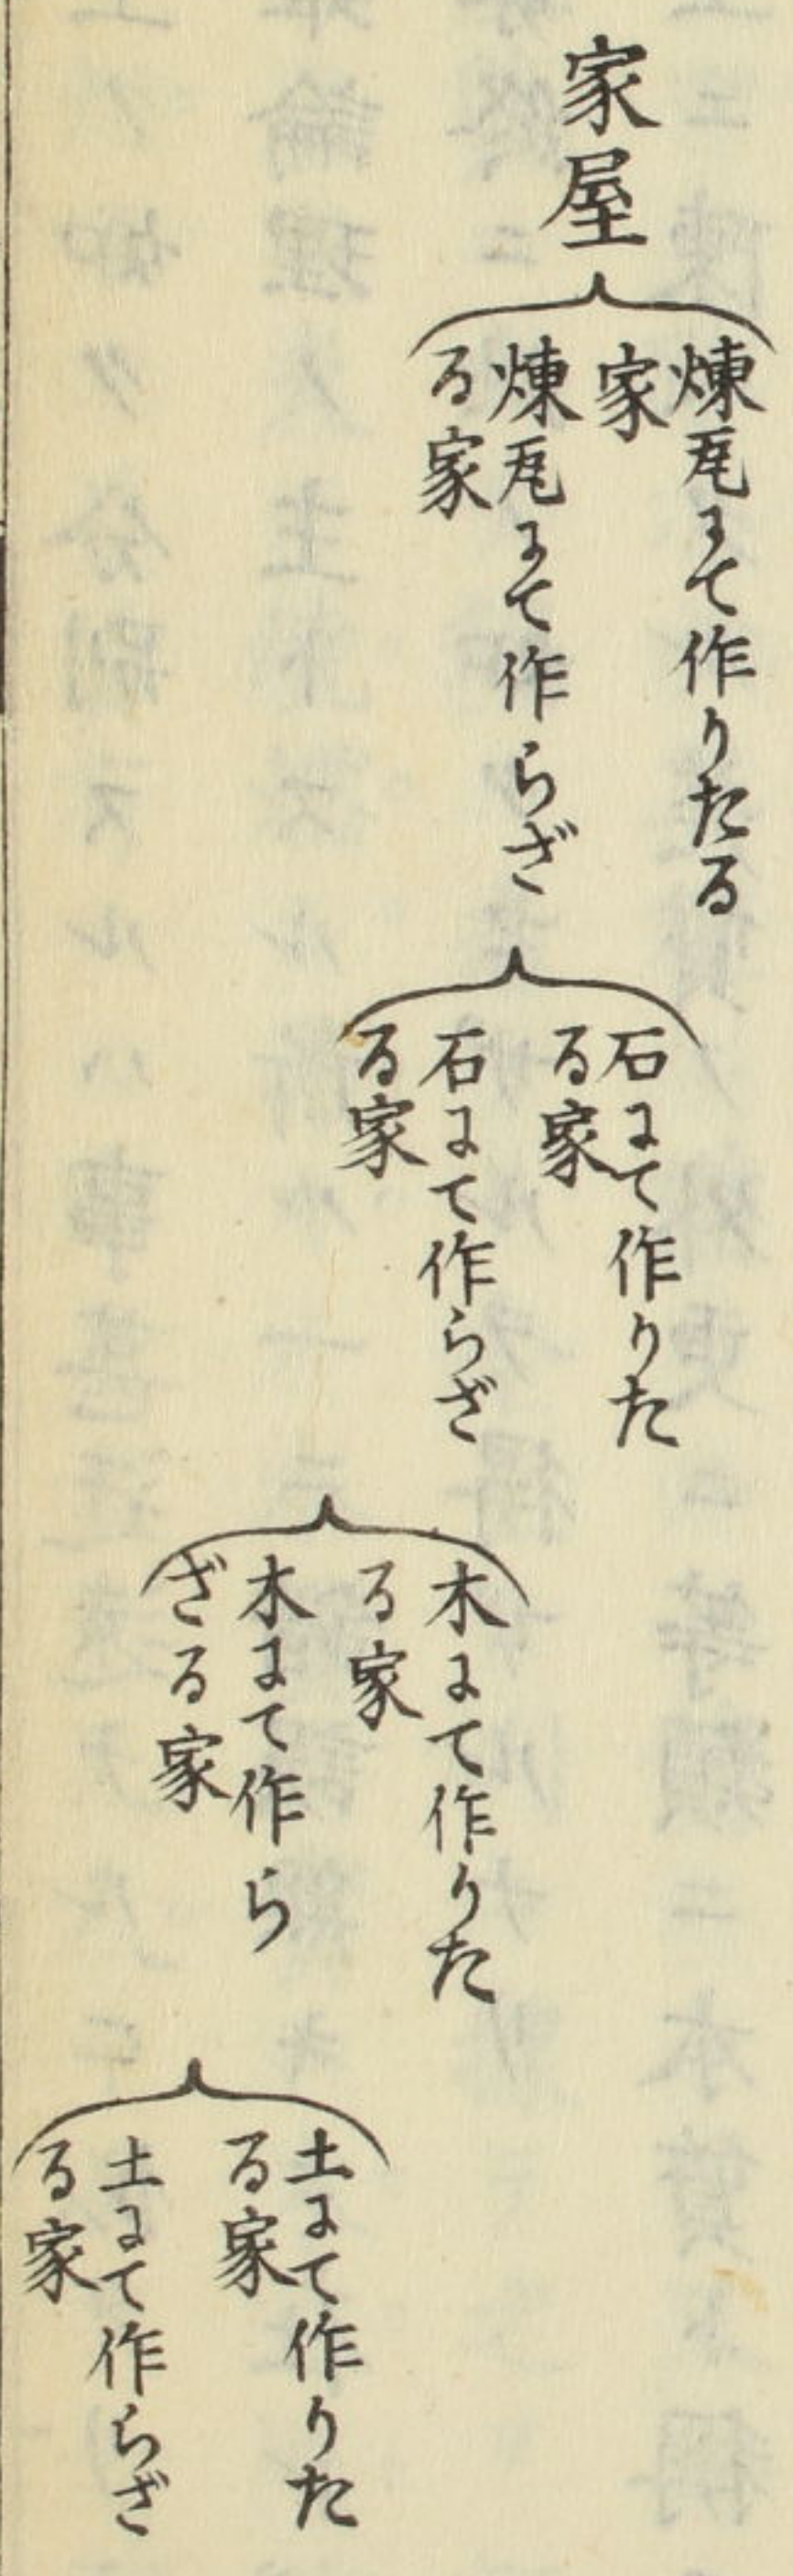 家屋
煉瓦にて作りたる
家
煉瓦にて作らざ
る家
石にて作りた
る家
石にて作らざ
る家
木にて作りた
る家
木にて作ら
ざる家
土にて作りた
る家
土にて作らざ
る家